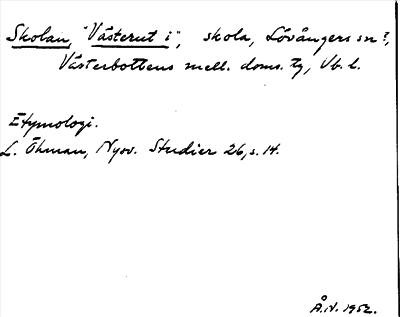 Skolan "Västerut i", skola, Lövångers sn?,
Västerbottens mell. doms. tg, Vb. l.
Etymologi.
L. Öhman, Nyov. Studier 26, s. 14.
Å.N. 1952.